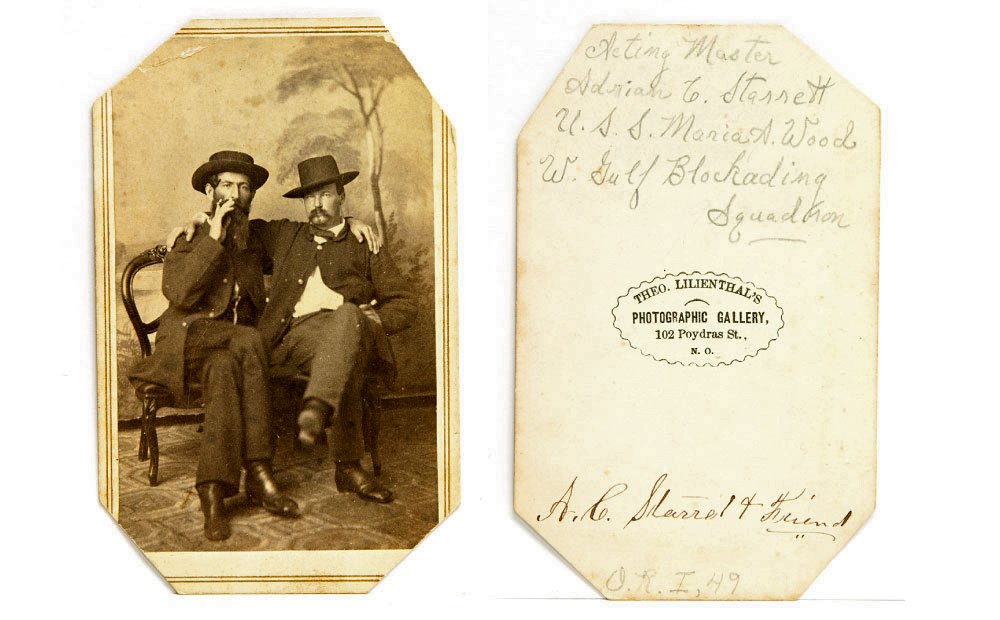 Acting Master
Adrian C. Starrett
U. S. S. Maria A. Wood
W. Gulf Blockading
Squadron
THEO. LILIENTHAL'S
PHOTOGRAPHIC GALLERY,
102 Poydras St.,
N. O.
A. C. Starret & Friend
O. R. I, 49